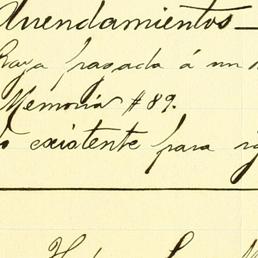 Arrendamientos—
Raya pagada á un
Memoria #89.
existente para